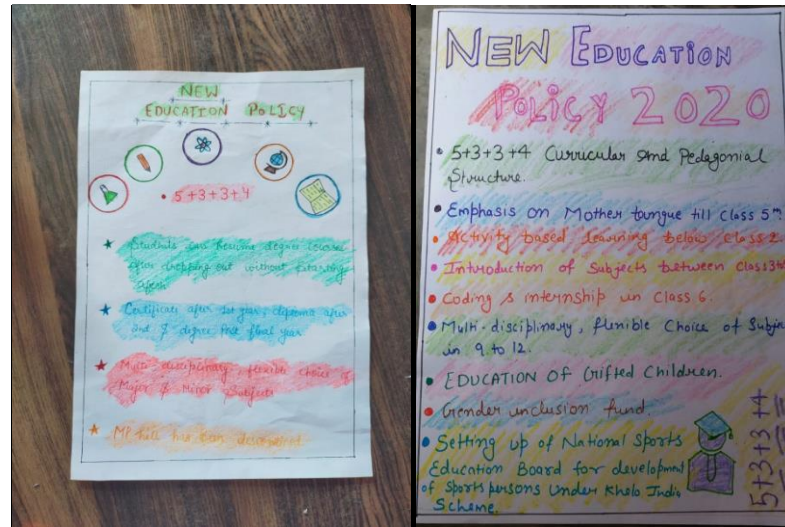 NEW
EDUCATION POLICY
• 5+3+3+4
Students can resume degree course
after dropping out without
afresh
Certificate after 1st year, diploma after
2nd & degree post final year
Multi disciplinary flexible choice of
Major & Minor Subjects
has been discontinued
NEW EDUCATION
POLICY 2020
• 5+3+3+4 Curricular And Pedagonial
Structure.
• Emphasis on Mother toungue till Class 5th.
• Activity based learning below Class 2.
• Introduction of Subjects between Class 3 to
• Coding & internship in Class 6.
• Multi-disciplinary, flenible Choice of Subje
in 9 to 12.
• EDUCATION OF Grifted Children.
• Gender inclusion fund.
• Setting up of National Sports
Education Board for development
of Sports persons Under Khelo India
Scheme.
5+3+3+4